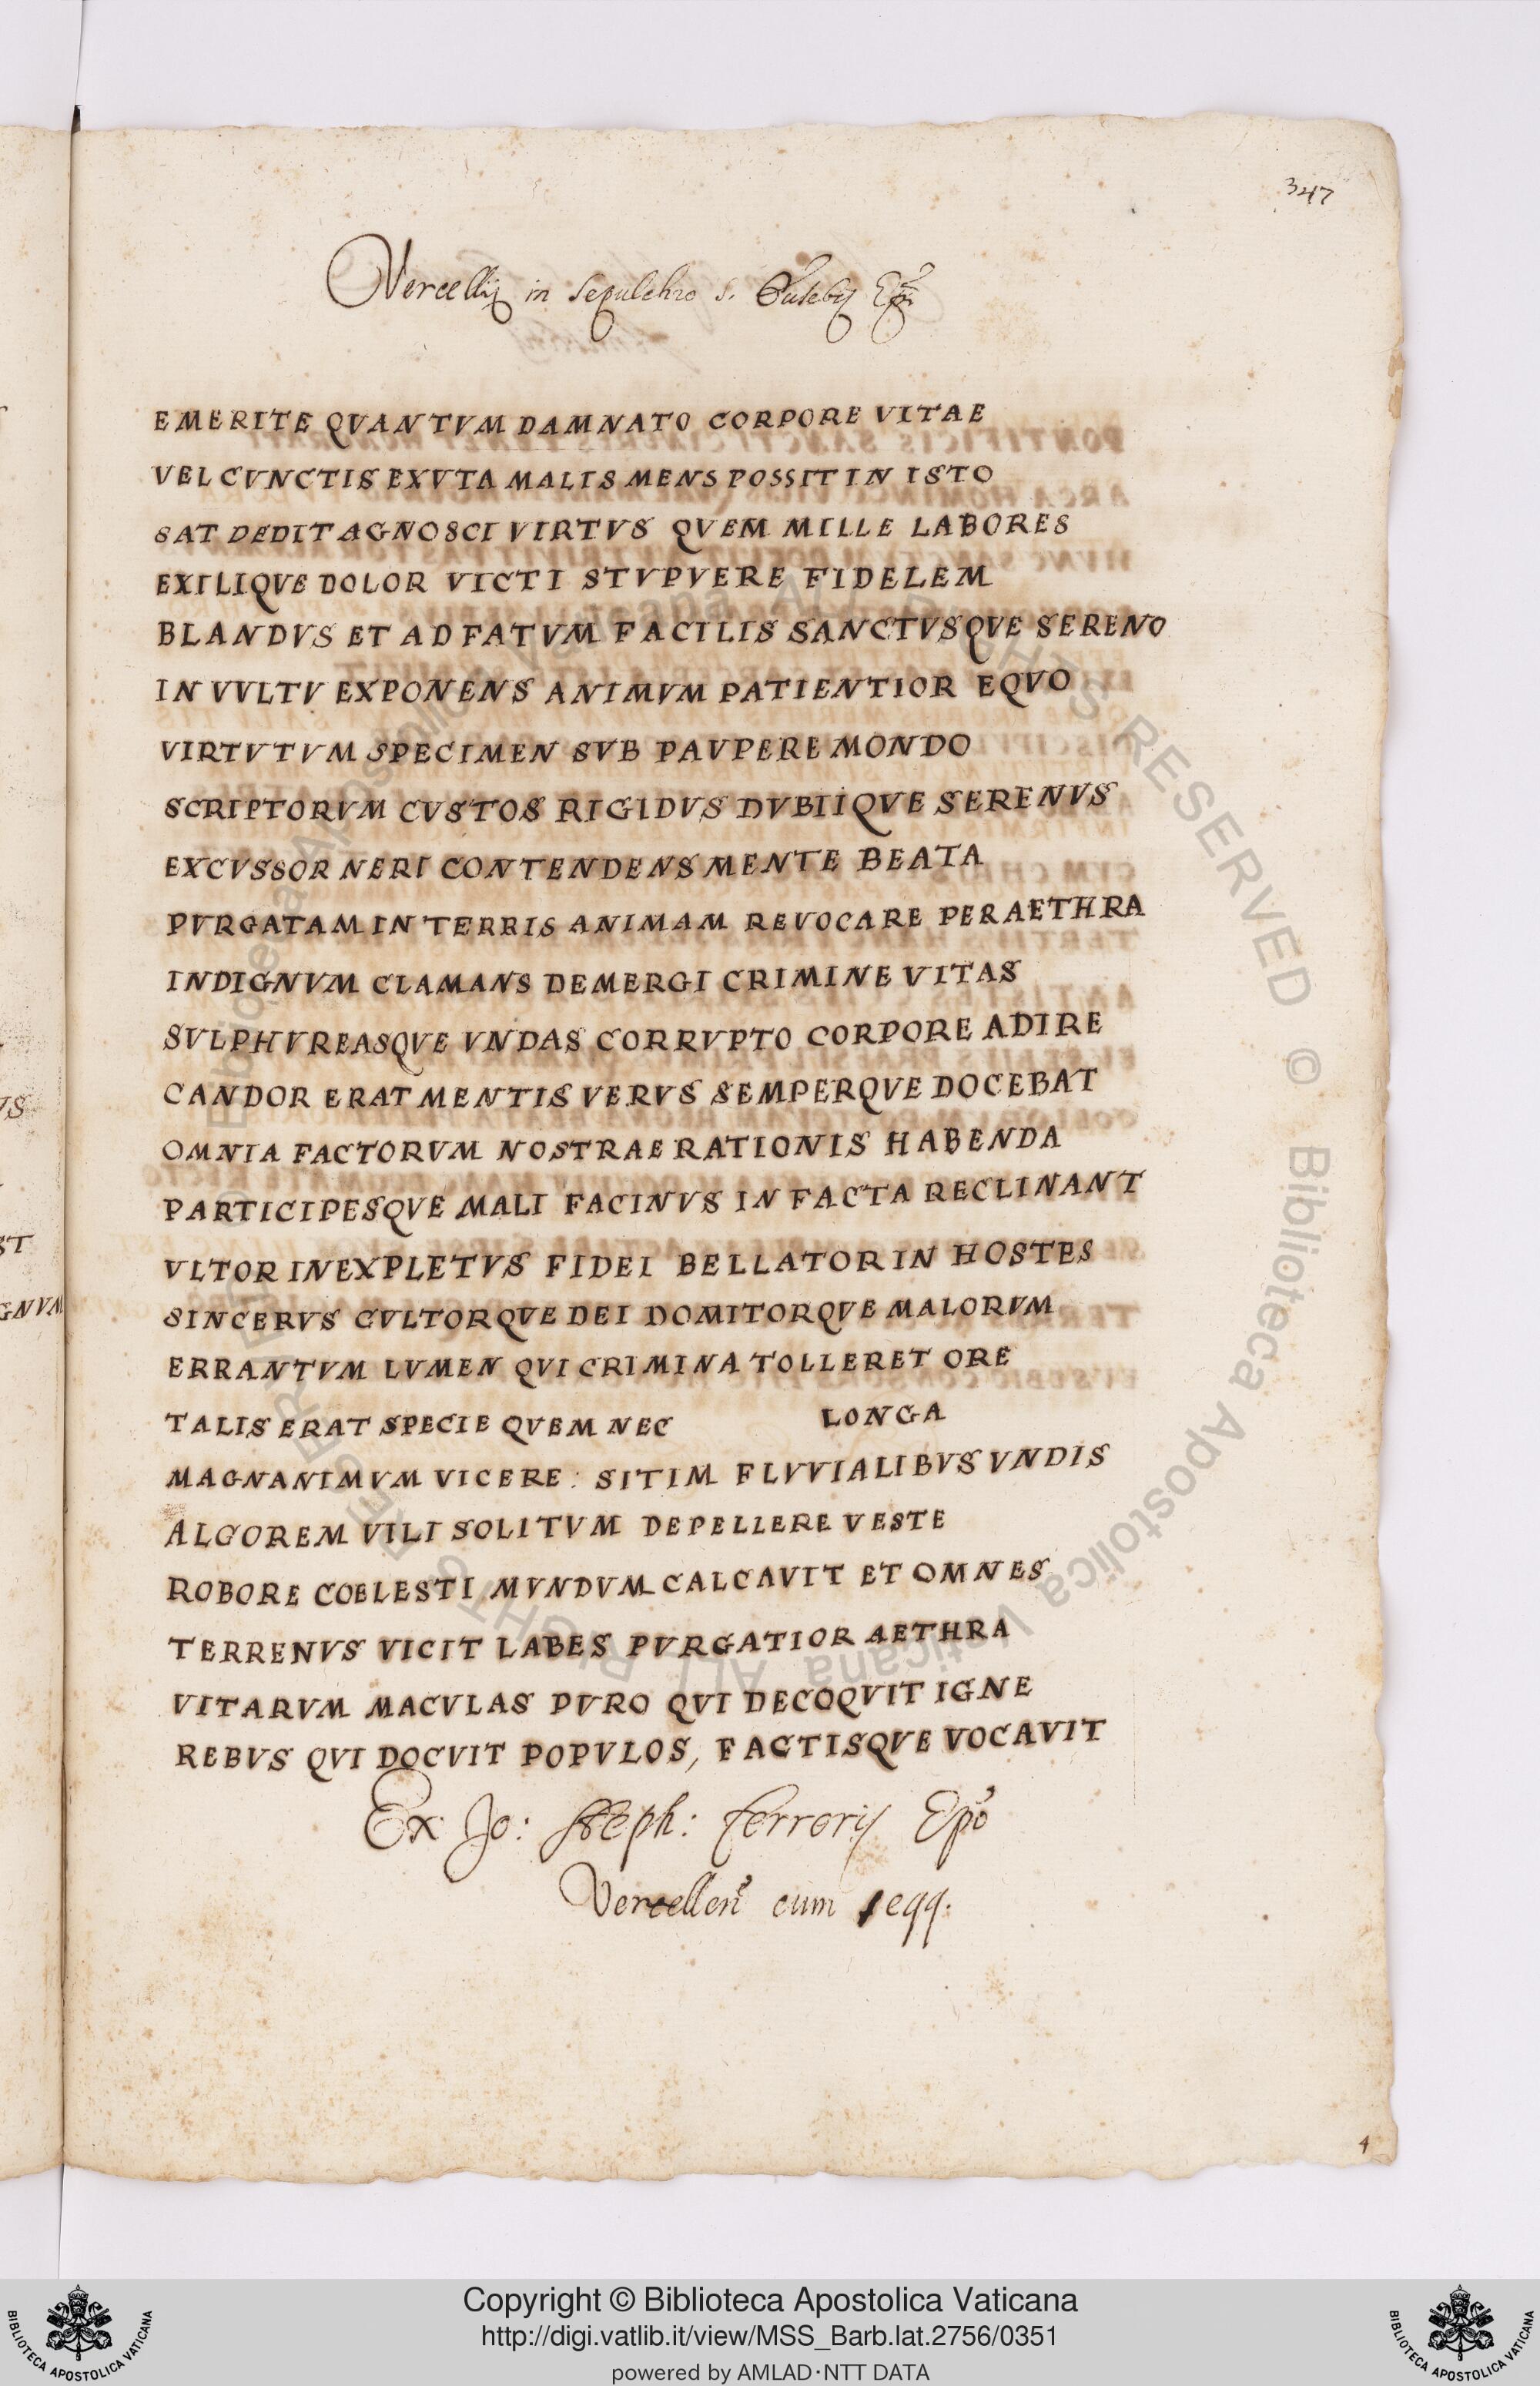 347
Vercellis in sepulchro S. Eusebij Epi
EMERITE QVANTVM DAMNATO CORPORE VITAE
VEL CVNCTIS EXVTA MALIS MENS POSSIT IN ISTO
SAT DEDIT AGNOSCI VIRTVS QVEM MILLE LABORES
EXILIQVE DOLOR VICTI STVPVERE FIDELEM
BLANDVS ET ADFATVM FACILIS SANCTVSQVE SERENO
IN VVLTV EXPONENS ANIMVM PATIENTIOR EQVO
VIRTVTVM SPECIMEN SVB PAVPERE MONDO
SCRIPTORVM CVSTOS RIGIDVS DVBIIQVE SERENVS
EXCVSSOR NERI CONTENDENS MENTE BEATA
PVRGATAM IN TERRIS ANIMAM REVOCARE PER AETHRA
INDIGNVM CLAMANS DEMERGI CRIMINE VITAS
SVLPHVREASQVE VNDAS CORRVPTO CORPORE ADIRE
CANDOR ERAT MENTIS VERVS SEMPERQVE DOCEBAT
OMNIA FACTORVM NOSTRAE RATIONIS HABENDA
PARTICIPESQVE MALI FACINVS IN FACTA RECLINANT
VLTOR INEXPLETVS FIDEI BELLATOR IN HOSTES
SINCERVS CVLTORQVE DEI DOMITORQVE MALORVM
ERRANTVM LVMEN QVI CRIMINA TOLLERET ORE
TALIS ERAT SPECIE QVEM NEC LONGA
MAGNANIMVM VICERE : SITIM FLVVIALIBVS VNDIS
ALGOREM VILI SOLITVM DEPELLERE VESTE
ROBORE COELESTI MVNDVM CALCAVIT ET OMNES
TERRENVS VICIT LABES PVRGATIOR AETHRA
VITARVM MACVLAS PVRO QVI DECOQVIT IGNE
REBVS QVI DOCVIT POPVLOS, FACTISQVE VOCAVIT
Ex Jo: Steph: ferrerij Epo
Vercellen cum seqq.
4
Copyright © Biblioteca Apostolica Vaticana
http://digi.vatlib.it/view/MSS_Barb.lat.2756/0351
powered by AMLAD·NTT DATA
BIBLIOTECA APOSTOLICA VATICANA
BIBLIOTECA APOSTOLICA VATICANA